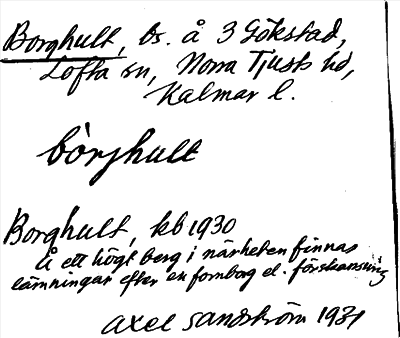 Borghult, bs. å 3 Gökstad,
Lofta sn, Norra Tjusts hd,
Kalmar l.
bòrjhult
Borghult, kb 1930
Å ett högt berg i närheten finnas
lämningar efter en fornborg el. förskansning
Axel Sandström 1931